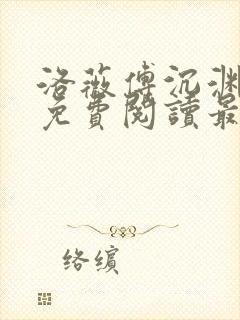 洛薇傅沉渊
免費閱讀最
络缤